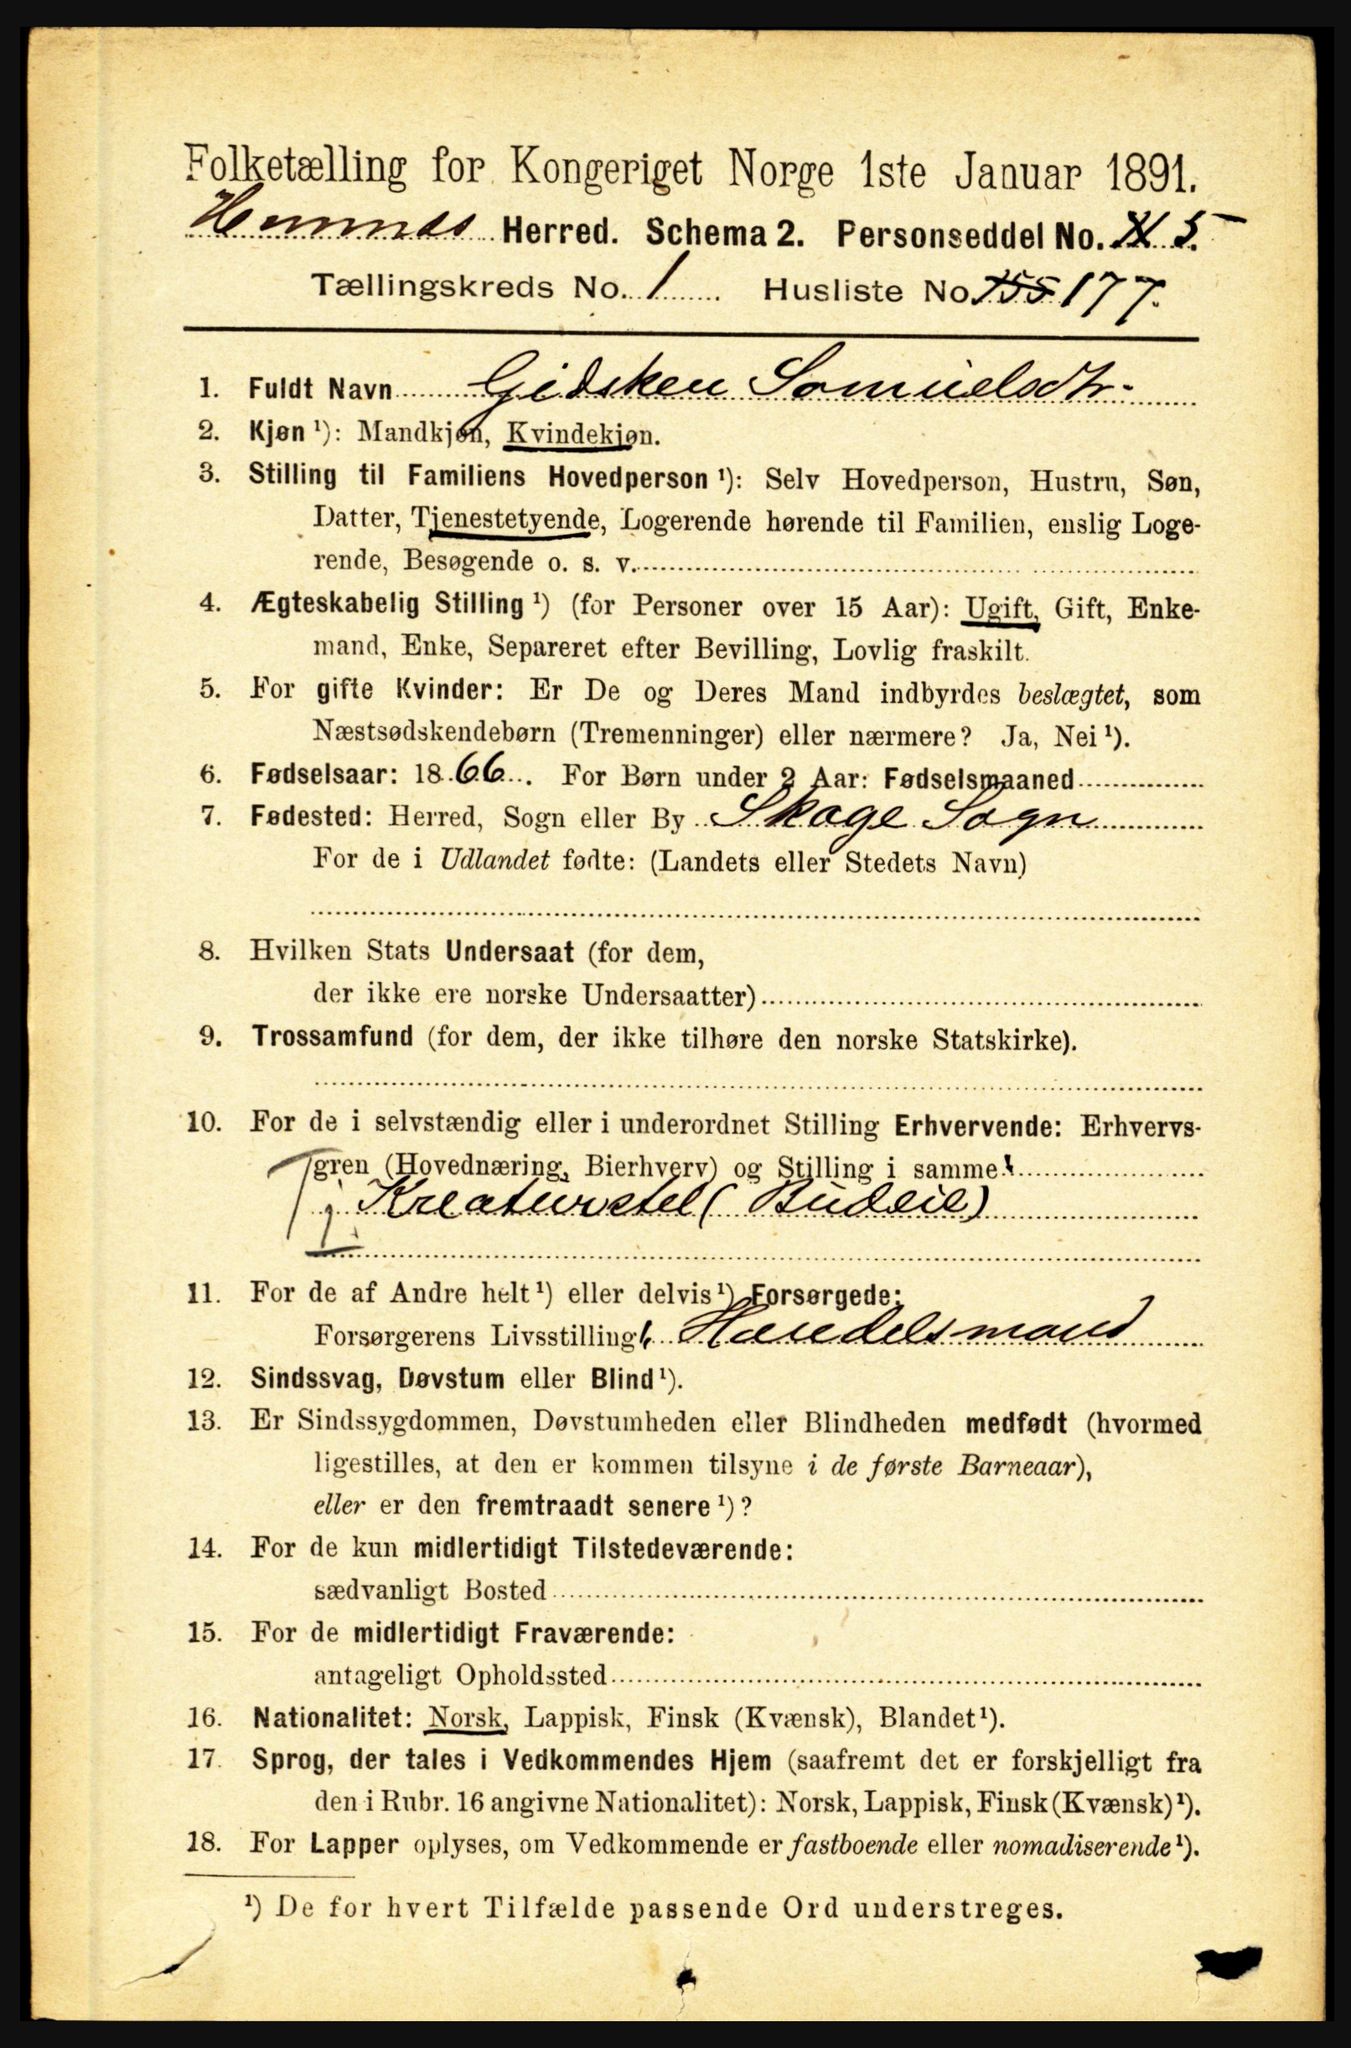 Folketælling for Kongeriget Norge 1ste Januar 1891.
Hemnæs Herred. Schema 2. Personseddel No. 5.
Tællingskreds No. 1 Husliste No. 155 177.
1. Fuldt Navn Gidsken Samuelsdtr.
2. Kjøn ¹): Mandkjøn, Kvindekjøn.
3. Stilling til Familiens Hovedperson ¹): Selv Hovedperson, Hustru, Søn,
Datter, Tjenestetyende, Logerende hørende til Familien, enslig Loge-
rende, Besøgende o. s. v.
4. Ægteskabelig Stilling ¹) (for Personer over 15 Aar): Ugift, Gift, Enke-
mand, Enke, Separeret efter Bevilling, Lovlig fraskilt.
5. For gifte Kvinder: Er De og Deres Mand indbyrdes beslægtet, som
Næstsødskendebørn (Tremenninger) eller nærmere? Ja, Nei ¹).
6. Fødselsaar: 1866. For Børn under 2 Aar: Fødselsmaaned
7. Fødested: Herred, Sogn eller By Skage Sogn
For de i Udlandet fødte: (Landets eller Stedets Navn)
8. Hvilken Stats Undersaat (for dem,
der ikke ere norske Undersaatter)
9. Trossamfund (for dem, der ikke tilhøre den norske Statskirke).
10. For de i selvstændig eller i underordnet Stilling Erhvervende: Erhvervs-
gren (Hovednæring, Bierhverv) og Stilling i samme
Kreaturstel (Budeie)
11. For de af Andre helt ¹) eller delvis ¹) Forsørgede:
Forsørgerens Livsstilling Handelsmand
12. Sindssvag, Døvstum eller Blind ¹).
13. Er Sindssygdommen, Døvstumheden eller Blindheden medfødt (hvormed
ligestilles, at den er kommen tilsyne i de første Barneaar),
eller er den fremtraadt senere ¹)?
14. For de kun midlertidigt Tilstedeværende:
sædvanligt Bosted
15. For de midlertidigt Fraværende:
antageligt Opholdssted
16. Nationalitet: Norsk, Lappisk, Finsk (Kvænsk), Blandet ¹).
17. Sprog, der tales i Vedkommendes Hjem (saafremt det er forskjelligt fra
den i Rubr. 16 angivne Nationalitet): Norsk, Lappisk, Finsk (Kvænsk) ¹).
18. For Lapper oplyses, om Vedkommende er fastboende eller nomadiserende ¹).
¹) De for hvert Tilfælde passende Ord understreges.